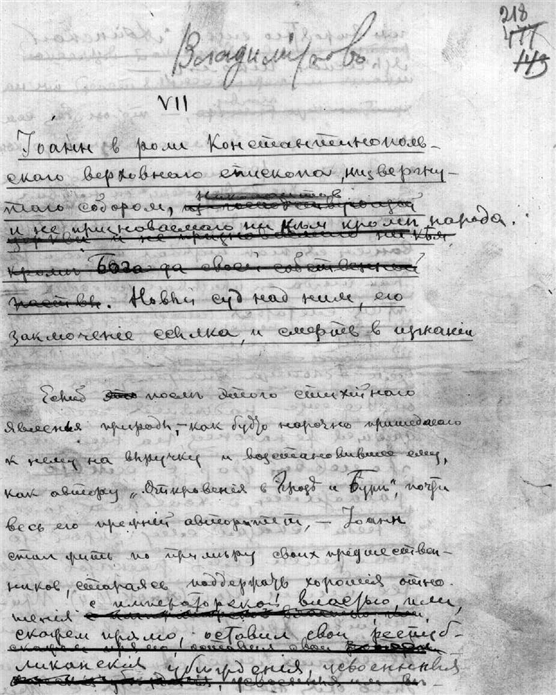 218
Владимірова
VII
Іоаннъ в роли Константинополь-
скаго верховнаго епископа, низвергну-
таго собором,
и не признаваемаго ни кѣм кромѣ народа.
кромѣ Бога да своей собственной
паствы. Новый суд над ним, его
заключеніе ссылка, и смерть в изгнании
Еслиб это послѣ этого стихійнаго
явленья природы, – как будто нарочно пришедшаго
к нему на выручку и возстановившаго ему,
как автору „Откровения в Грозѣ и Бурѣ", почти
весь его прежній авторитет, – Іоанн
стал жить по примѣру своих предшествен-
ников, стараясь поддержать хорошія отно-
шения с императорской властью, или,
скажем прямо, оставил свои респуб-
ликанския убѣждения, усвоенныя